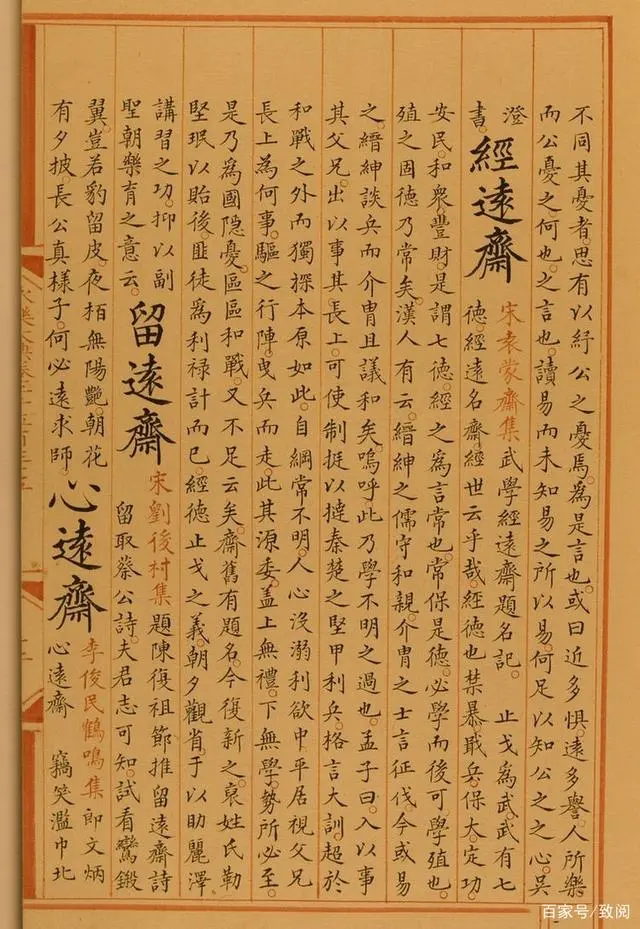 不同其憂者。思有以紓公之憂焉。為是言也。或曰近多懼。遠多譽。人所樂
而公憂之。何也。之言也。讀易而未知易之所以易。何足以知公之心。吳
澄
書。
經遠齋
宋袁蒙齋集 武學經遠齋題名記。 止戈為武。武有七
德。經遠名齋。經世云乎哉。經德也。禁暴戢兵。保大定功。
安民。和衆豐財。是謂七德。經之為言常也。常保是德。必學而後可。學殖也。
殖之固德乃常矣。漢人有云。縉紳之儒守和親。介冑之士言征伐。今或易
之。縉紳談兵而介冑且議和矣。嗚呼。此乃學不明之過也。孟子曰。入以事
其父兄。出以事其長上。可使制挺以撻秦楚之堅甲利兵。格言大訓。超於
和戰之外而獨探本原如此。自綱常不明。人心沒溺利欲中。平居視父兄
長上為何事。驅之行陣。曳兵而走。此其源委。蓋上無禮。下無學。勢所必至。
是乃為國隱憂。區區和戰。又不足云矣。齋舊有題名。今復新之。裒姓氏勒
堅珉以貽後。匪徒為利祿計而已。經德止戈之義。朝夕觀省。于以助麗澤
講習之功。抑以副
聖朝樂育之意云。
留遠齋
宋劉後村集 題陳復祖節推留遠齋詩
留取蔡公詩。夫君志可知。試看鸞鍛
翼。豈若豹留皮。夜栢無陽艷。朝花
有夕披。長公真樣子。何必遠求師。
心遠齋
李俊民鶴鳴集 即文炳
心遠齋 竊笑濫巾北
百家号/致阅